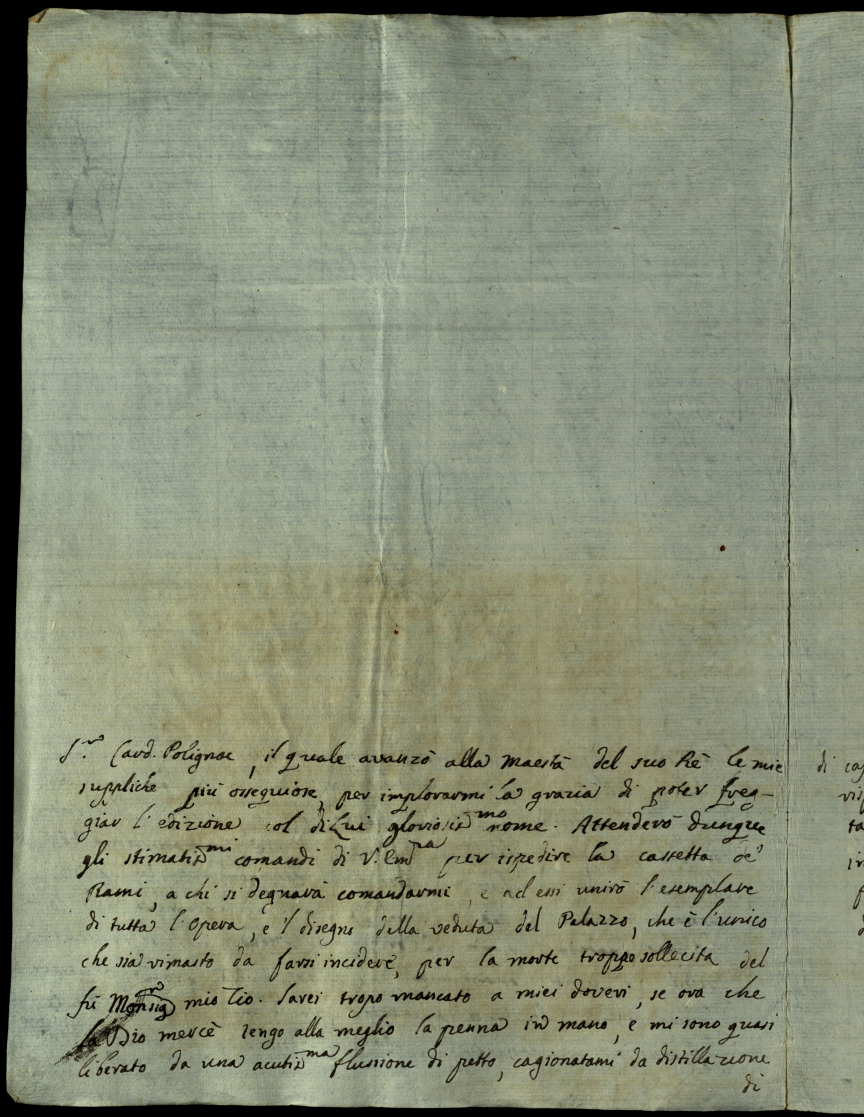 S.re Card. Polignac, il quale avanzò alla Maestà del suo Rè le mie
suppliche più ossequiose, per implorarmi la grazia di poter freg-
giar l'edizione col di Lui gloriosis.mo nome. Attenderò dunque
gli stimatis.mi comandi di V. Em.za per ispedire la cassetta de'
Rami, a chi si degnarà comandarmi, e ad essi unirò l'esemplare
di tutta l'Opera, e 'l disegno della veduta del Palazzo, che è l'unico
che sia rimasto da farsi incidere, per la morte troppo sollecita del
fù Monsig.r mio Zio. Sarei tropo mancato a miei doveri, se ora che
la Dio mercè tengo alla meglio la penna in mano, e mi sono quasi
liberato da una acutis.ma flussione di petto, cagionatami da distillazione
di
di